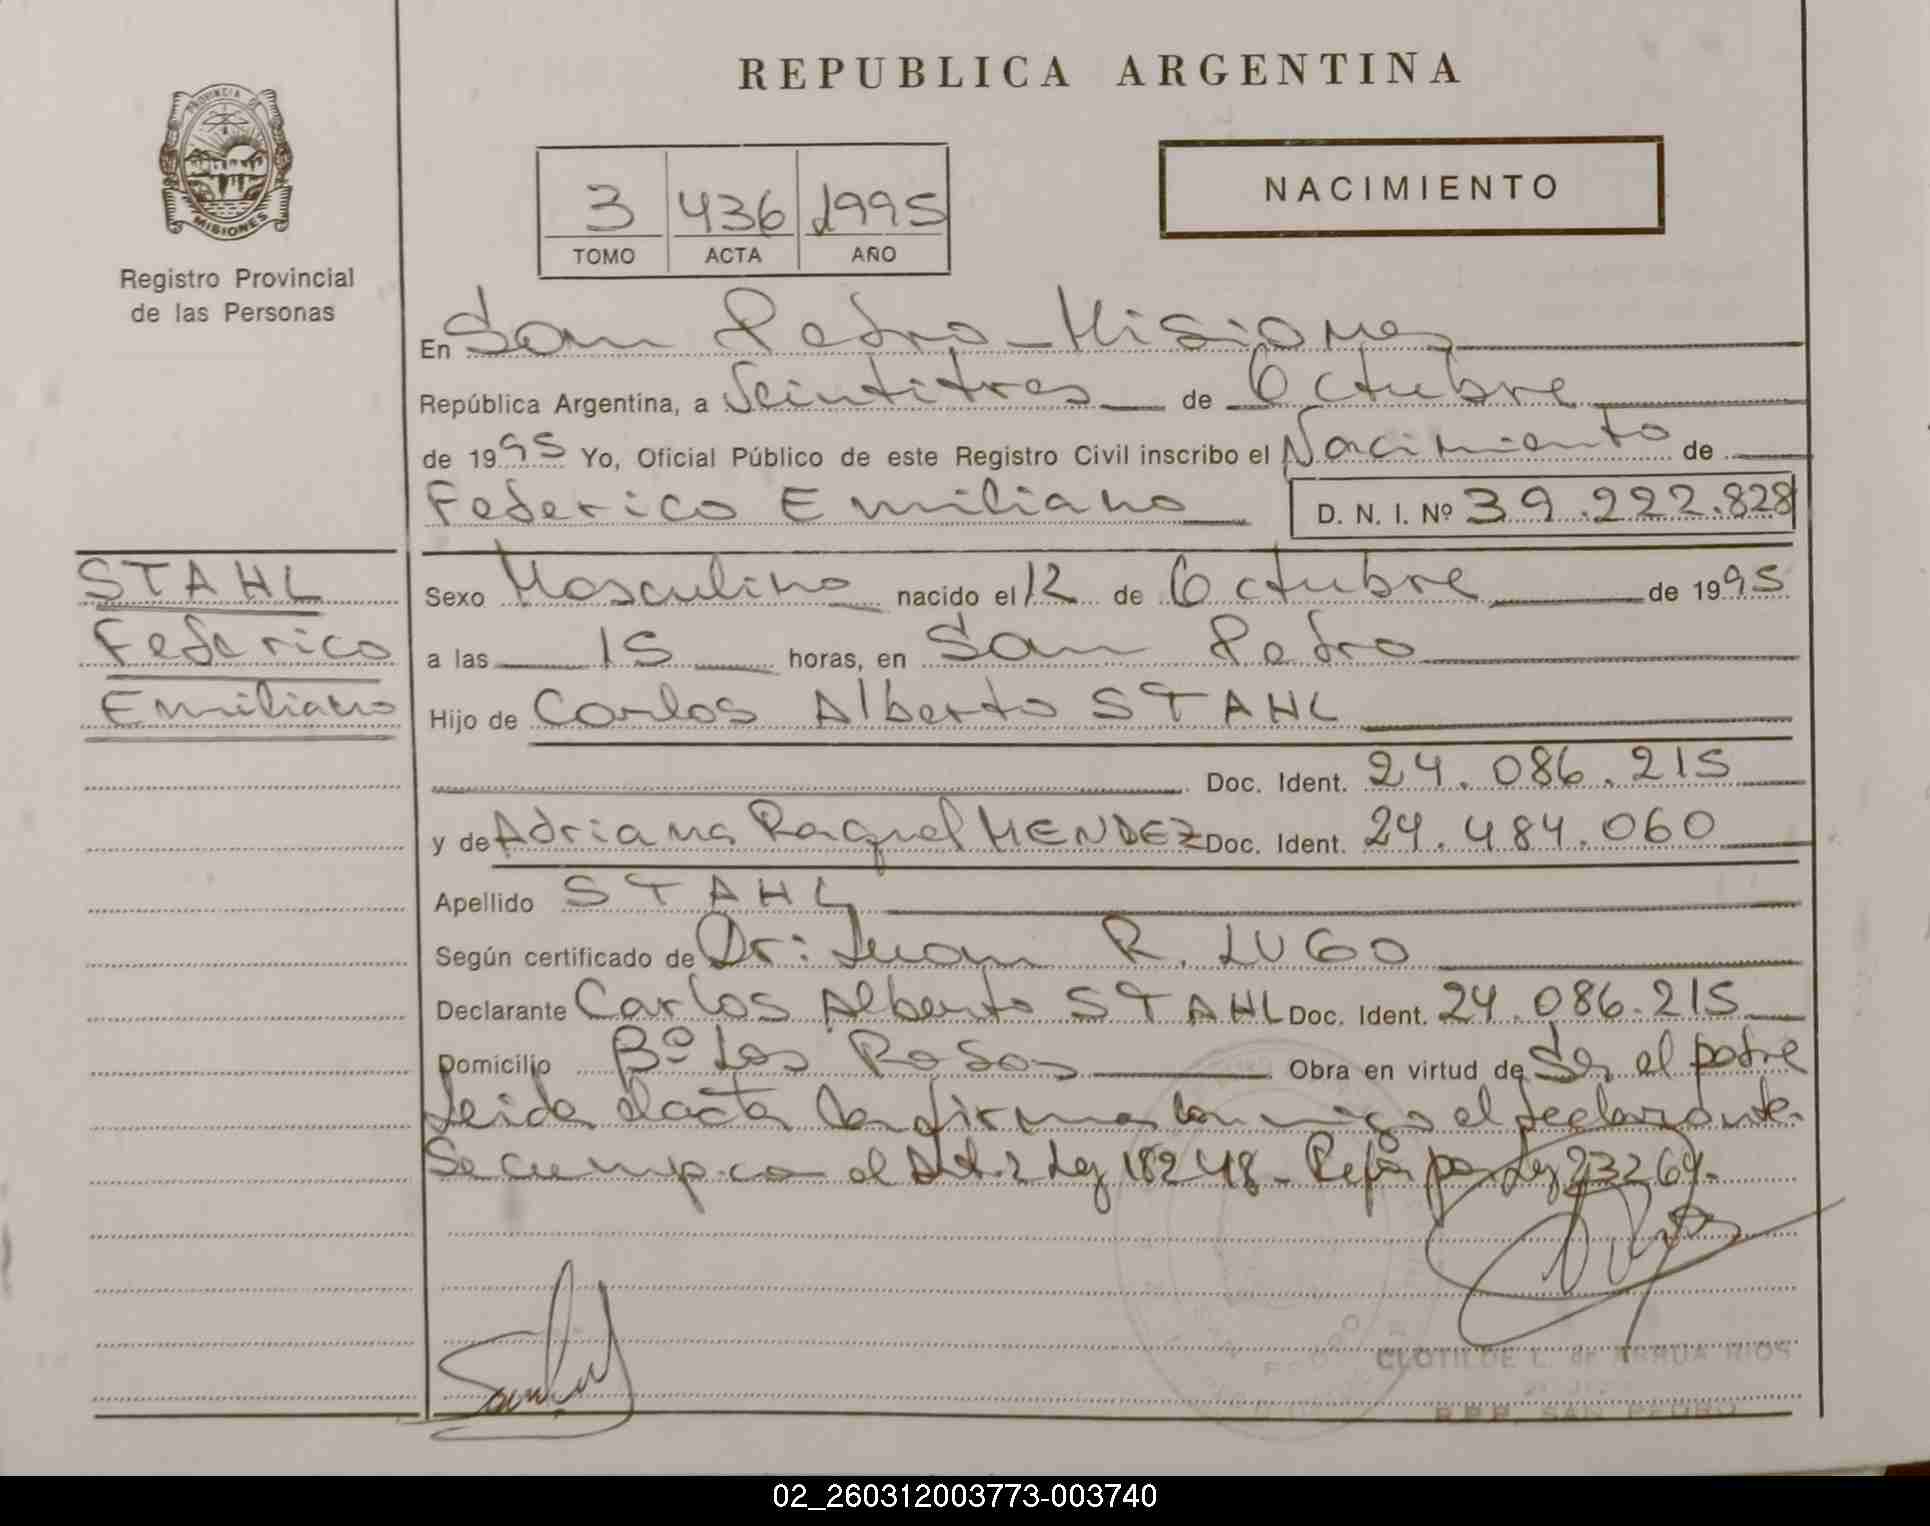 REPUBLICA ARGENTINA
PROVINCIA DE
MISIONES
Registro Provincial
de las Personas
3 436 1995
TOMO ACTA AÑO
NACIMIENTO
En San Pedro - Misiones
República Argentina, a Veintitres de Octubre
de 1995 Yo, Oficial Público de este Registro Civil inscribo el Nacimiento de
Federico Emiliano D. N. I. Nº 39.222.828
STAHL
Federico
Emiliano
Sexo Masculino nacido el 12 de Octubre de 1995
a las 15 horas, en San Pedro
Hijo de Carlos Alberto STAHL
Doc. Ident. 24.086.215
y de Adriana Raquel MENDEZ Doc. Ident. 24.484.060
Apellido STAHL
Según certificado de Dr: Juan R. LUGO
Declarante Carlos Alberto STAHL Doc. Ident. 24.086.215
Domicilio Bº Las Rosas Obra en virtud de Ser el padre
Leida el acta la firma conmigo el declarante.
el Art. 2 Ley 18248 - por Ley 23264.
CLOTILDE L. de ARRUA RIOS
R.P.P. SAN PEDRO
02_260312003773-003740